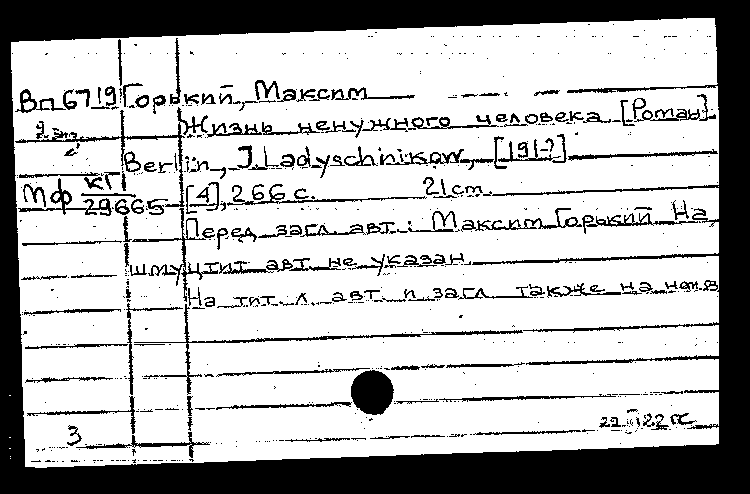 Вп 6719 Горький, Максим
2 экз. Жизнь ненужного человека [Роман].
Berlin, J. Ladyschnikow, [191-?]
Мф КГ/29665 [4], 266 с. 21 cm.
Перед загл. авт.: Максим Горький. На
шмуцтит. авт. не указан.
На тит. л. авт. и загл. также на нем. в
3